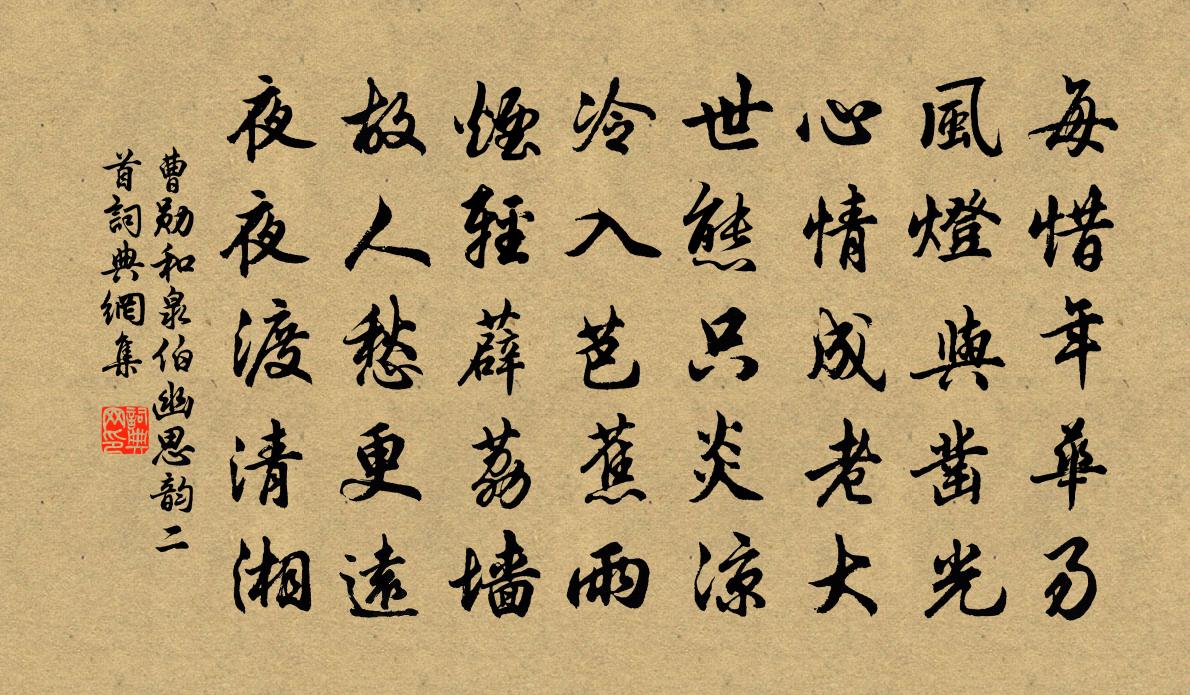 每惜年華易
風燈與凿光
心情成老大
世態只炎涼
冷入芭蕉雨
煙輕薜荔墙
故人愁更遠
夜夜渡清湘
曹勛和泉伯幽思韵二
首詞典網集
詞典
网印